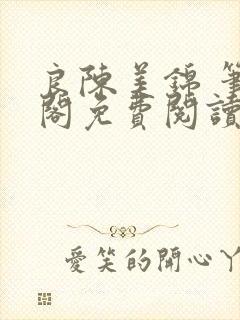 良陳美錦 筆
閣免費閱讀
愛笑的開心丫